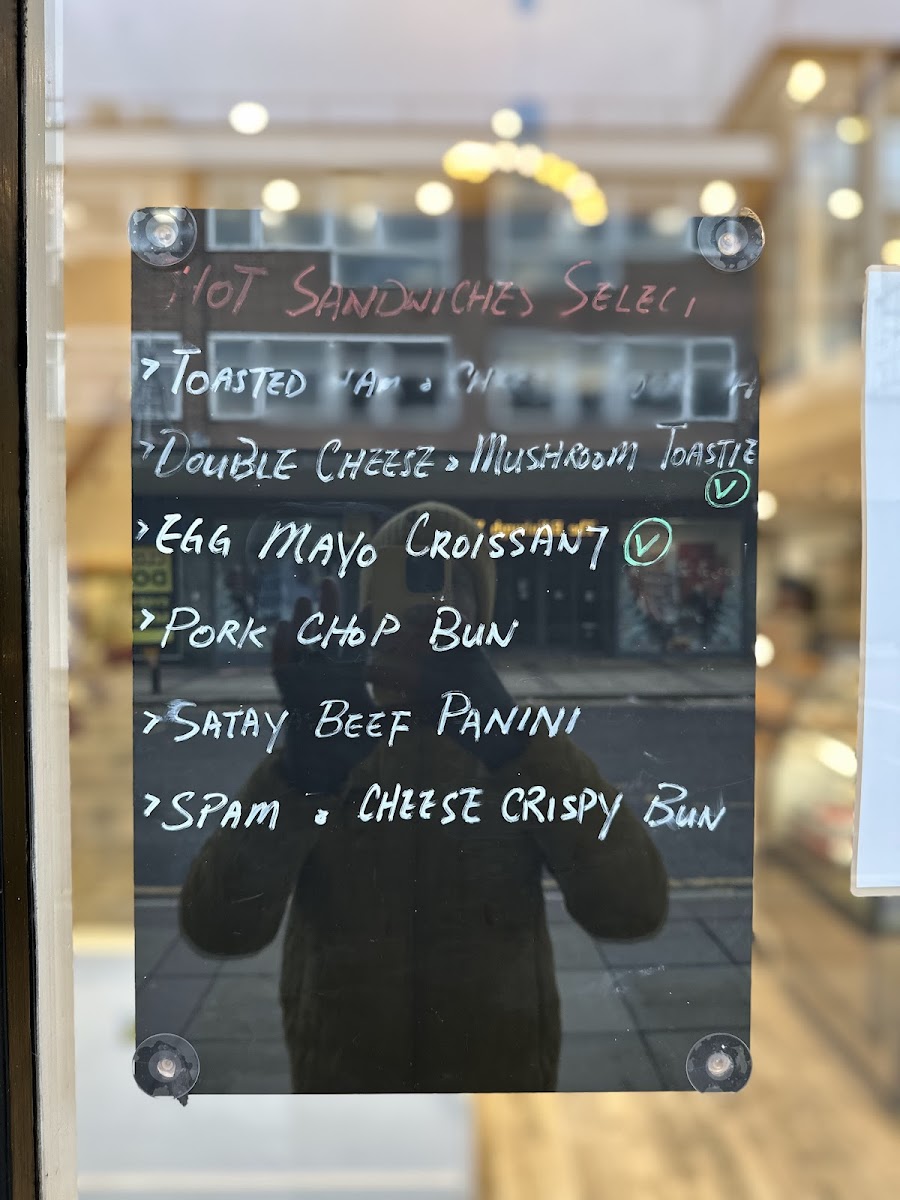 HOT SANDWICHES SELECT
> TOASTED HAM & CHEESE
> DOUBLE CHEESE & MUSHROOM TOASTIE
Ⓥ
> EGG MAYO CROISSANT Ⓥ
> PORK CHOP BUN
> SATAY BEEF PANINI
> SPAM & CHEESE CRISPY BUN